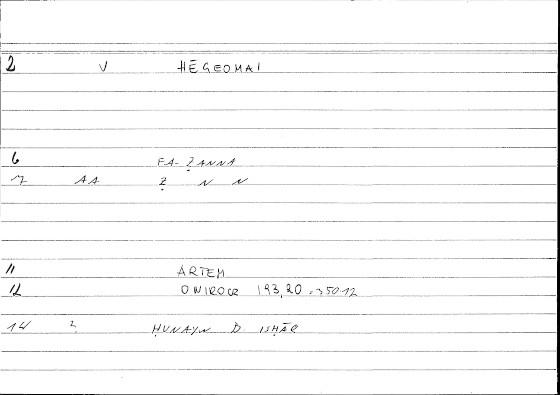 2 V HĒGEOMAI
6 FA-ẒANNA
7 AA Ẓ N N
11 ARTEM
12 ONIROCR 193,20 = 350 12
14 2 ḤUNAYN B ISḤĀQ